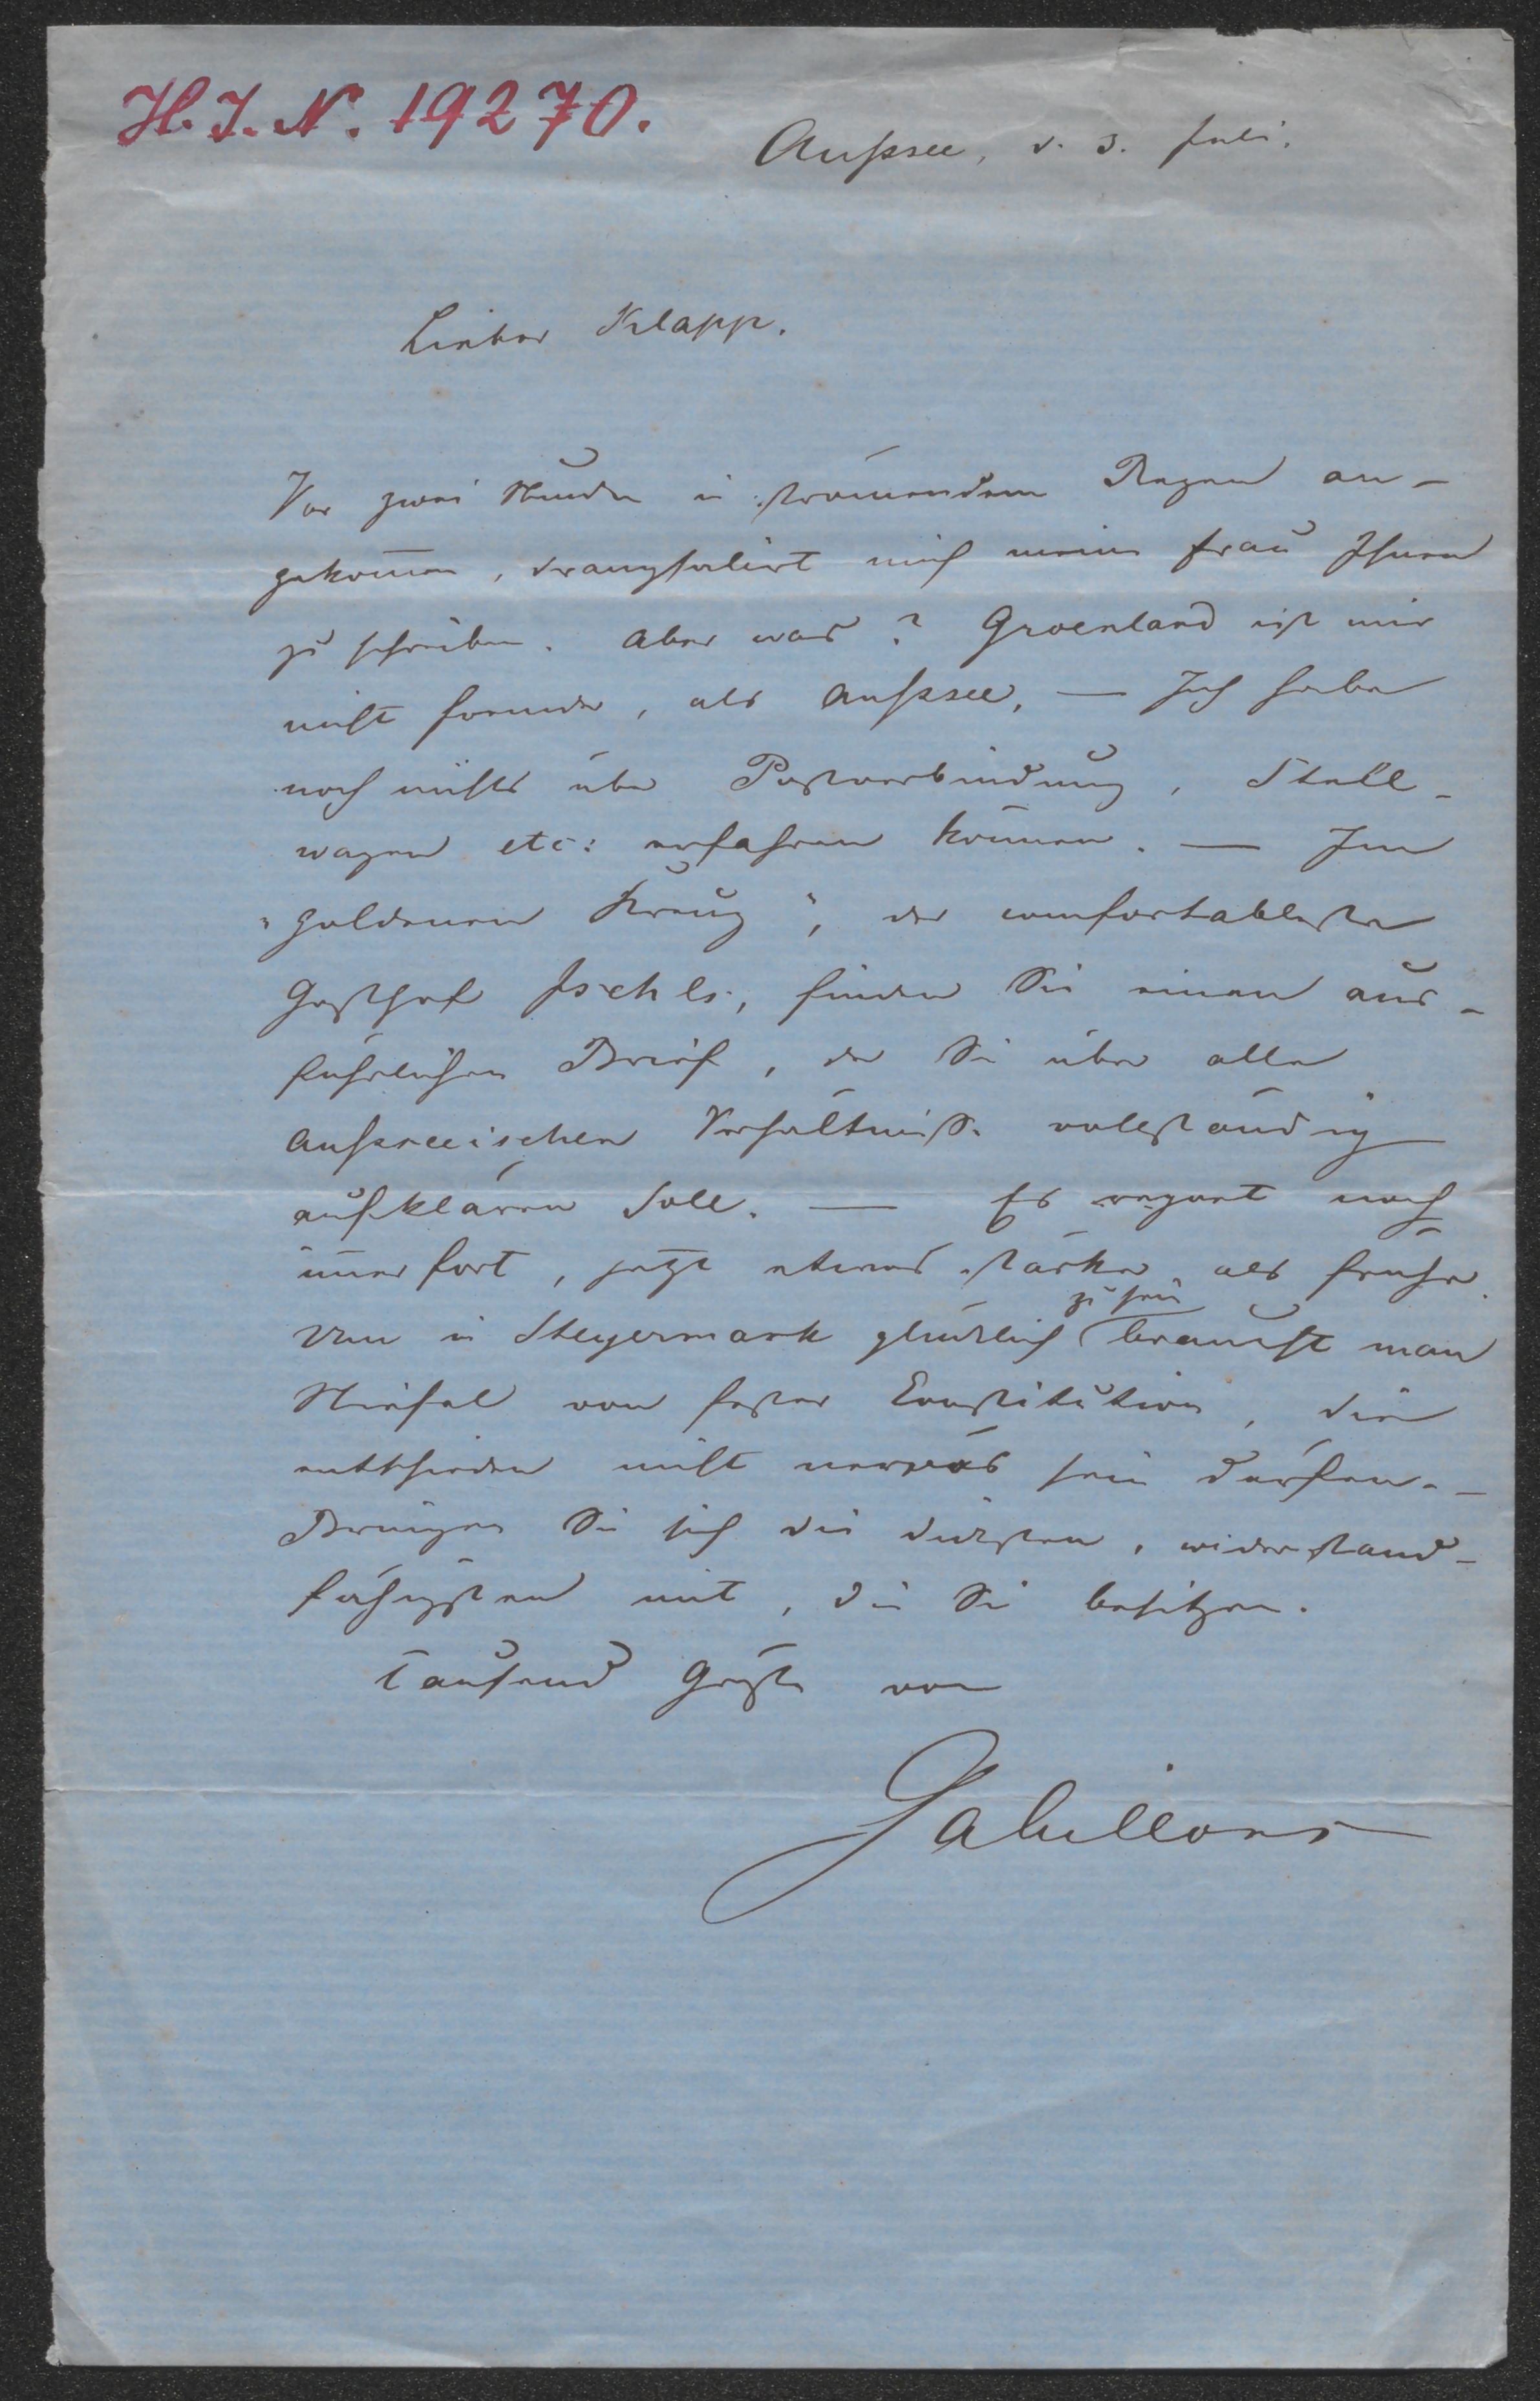 H. I. N. 19270.
Aussee, d. 3. Juli.
Lieber Klapp.
Vor zwei Stunden in strömendem Regen an-
gekom̅en, drangsalirt mich meine Frau Ihnen
zu schreiben. Aber was? Groenland ist mir
nicht fremder, als Aussee, — Ich habe
noch nichts über Postverbindung, Stell-
wagen etc: erfahren können. — Im
„goldenen Kreuz“, der comfortableste
Gasthof Ischls, finden Sie einen aus-
führlichen Brief, der Sie über alle
Ausseeischen Verhältnisse vollständig
aufklären soll. — Es regnet noch
im̅erfort, jetzt etwas stärker als früher.
Um in Steyermark glücklich zu sein braucht man
Stiefel von fester Constitution, die
entschieden nicht nervös sein dürfen. –
Bringen Sie sich die dicksten, widerstand-
fähigsten mit, die Sie besitzen.
Tausend Grüße von
Gabillons